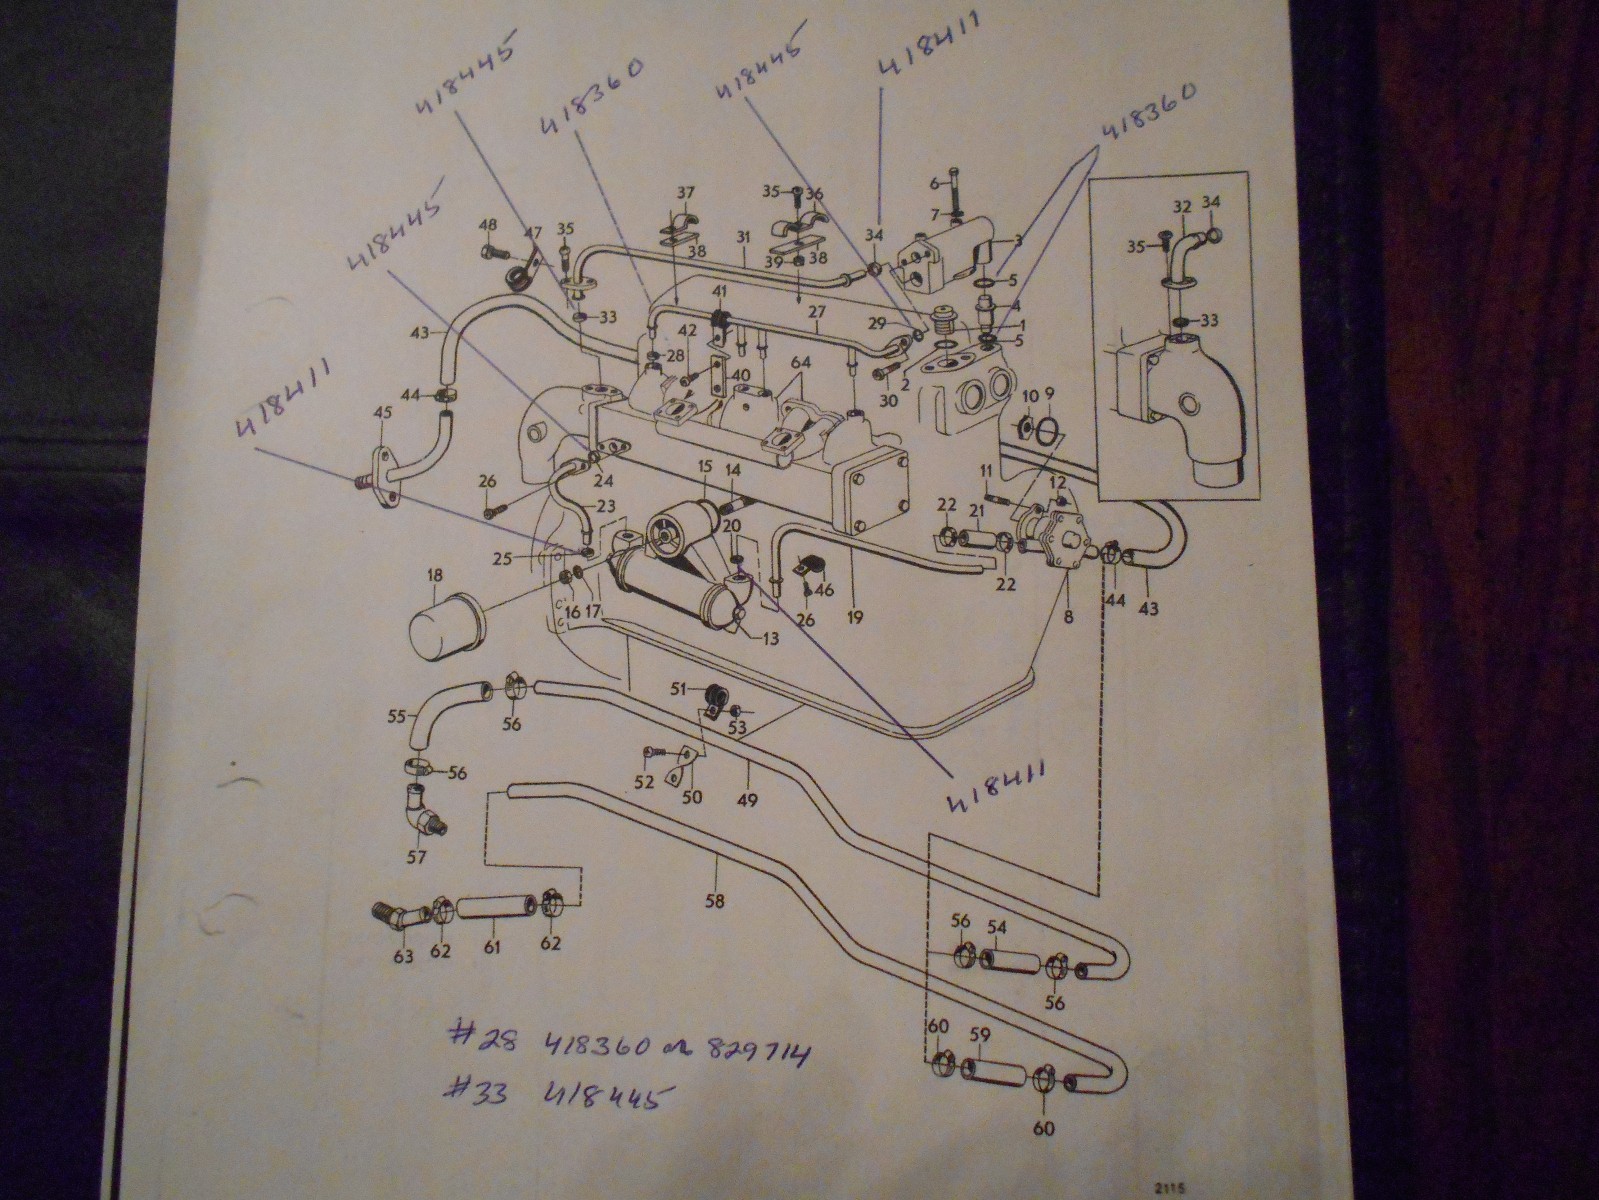 418445
418360
418445
418411
418360
418445
418411
6
7
3
34
5
4
1
5
2
48
47
35
37
38
31
35
36
39
38
41
27
29
30
33
42
28
40
64
43
44
45
32
34
35
33
10
9
11
12
26
24
23
25
15
14
20
22
21
22
18
16
17
13
46
26
19
8
44
43
418411
55
56
56
57
51
53
52
50
49
58
63
62
61
62
56
54
56
60
59
60
#28 418360 or 829714
#33 418445
2115